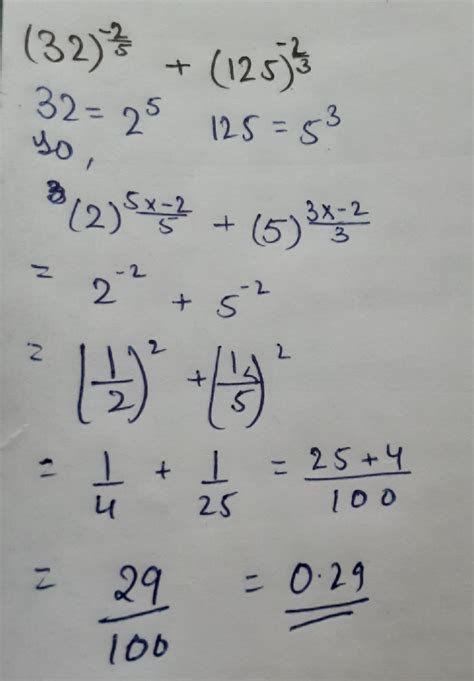 (32)^(-2/5) + (125)^(-2/3)
32 = 2^5 125 = 5^3
so,
(2)^(5x-2/5) + (5)^(3x-2/3)
= 2^-2 + 5^-2
= (1/2)^2 + (1/5)^2
= 1/4 + 1/25 = 25+4/100
= 29/100 = 0.29